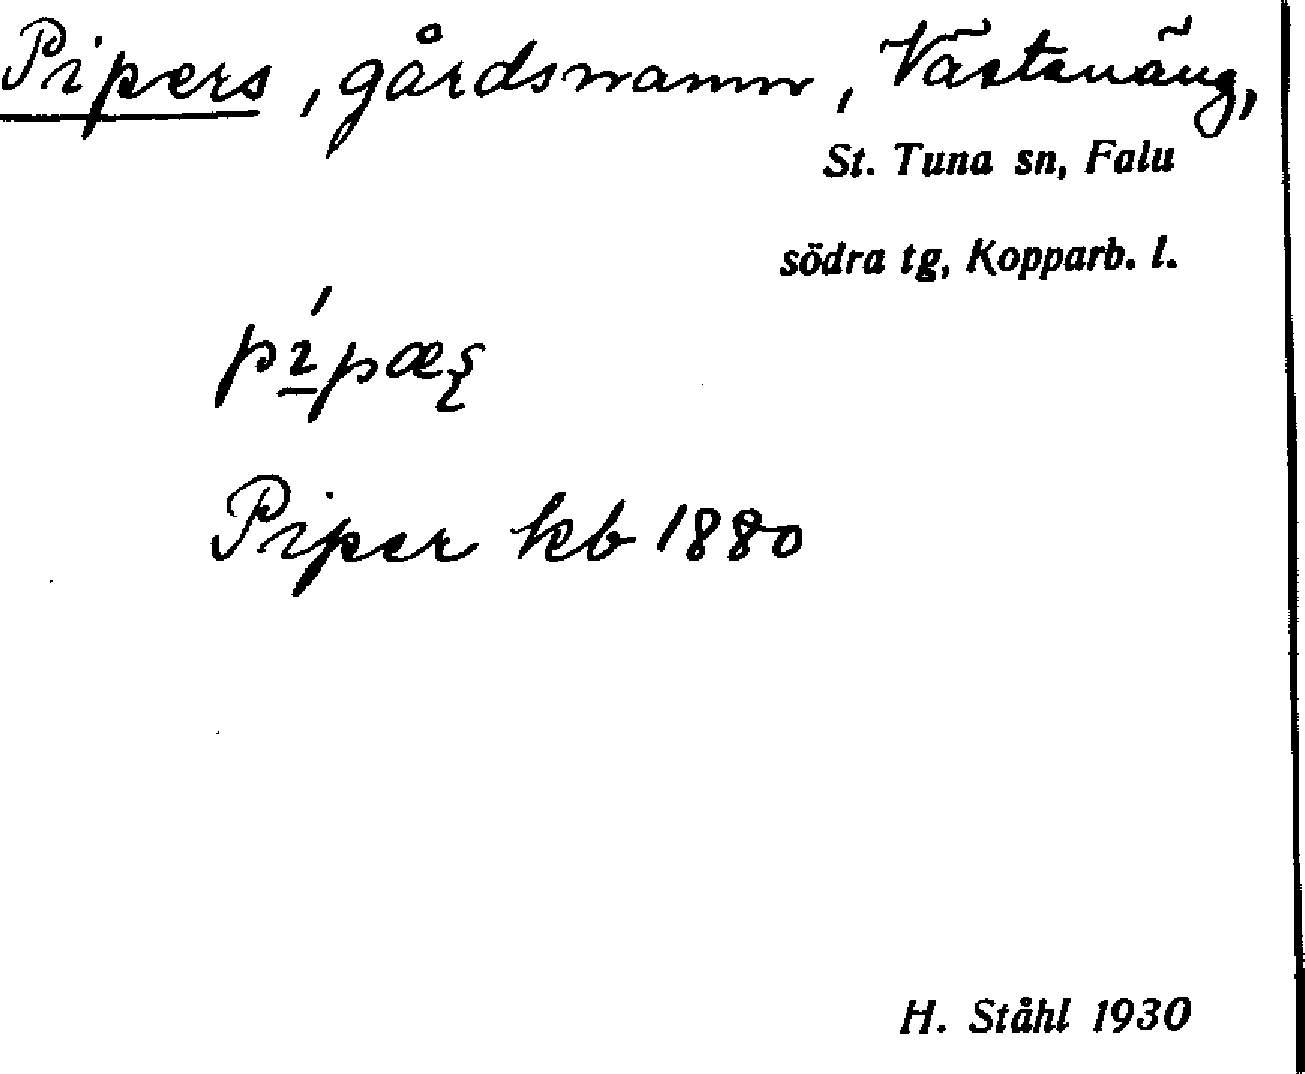 Pipers, gårdsnamn, Västanäng,
St. Tuna sn, Falu
södra tg, Kopparb. l.
Piper kb 1880
H. Ståhl 1930